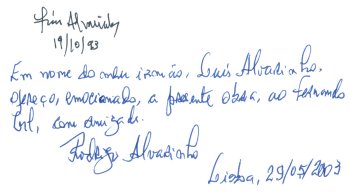 Luís Alvarinho
19/10/93
Em nome do meu irmão, Luís Alvarinho,
ofereço, emocionado, a presente obra, ao Fernando
com amizade.
Rodrigo Alvarinho
Lisboa, 29/05/2003